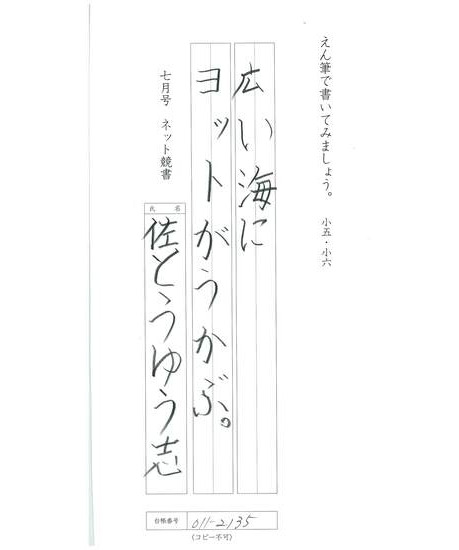 えん筆で書いてみましょう。 小五・小六
広い海に
ヨットがうかぶ。
七月号 ネット競書
氏名
佐とうゆう志
台帳番号 011-2135
(コピー不可)